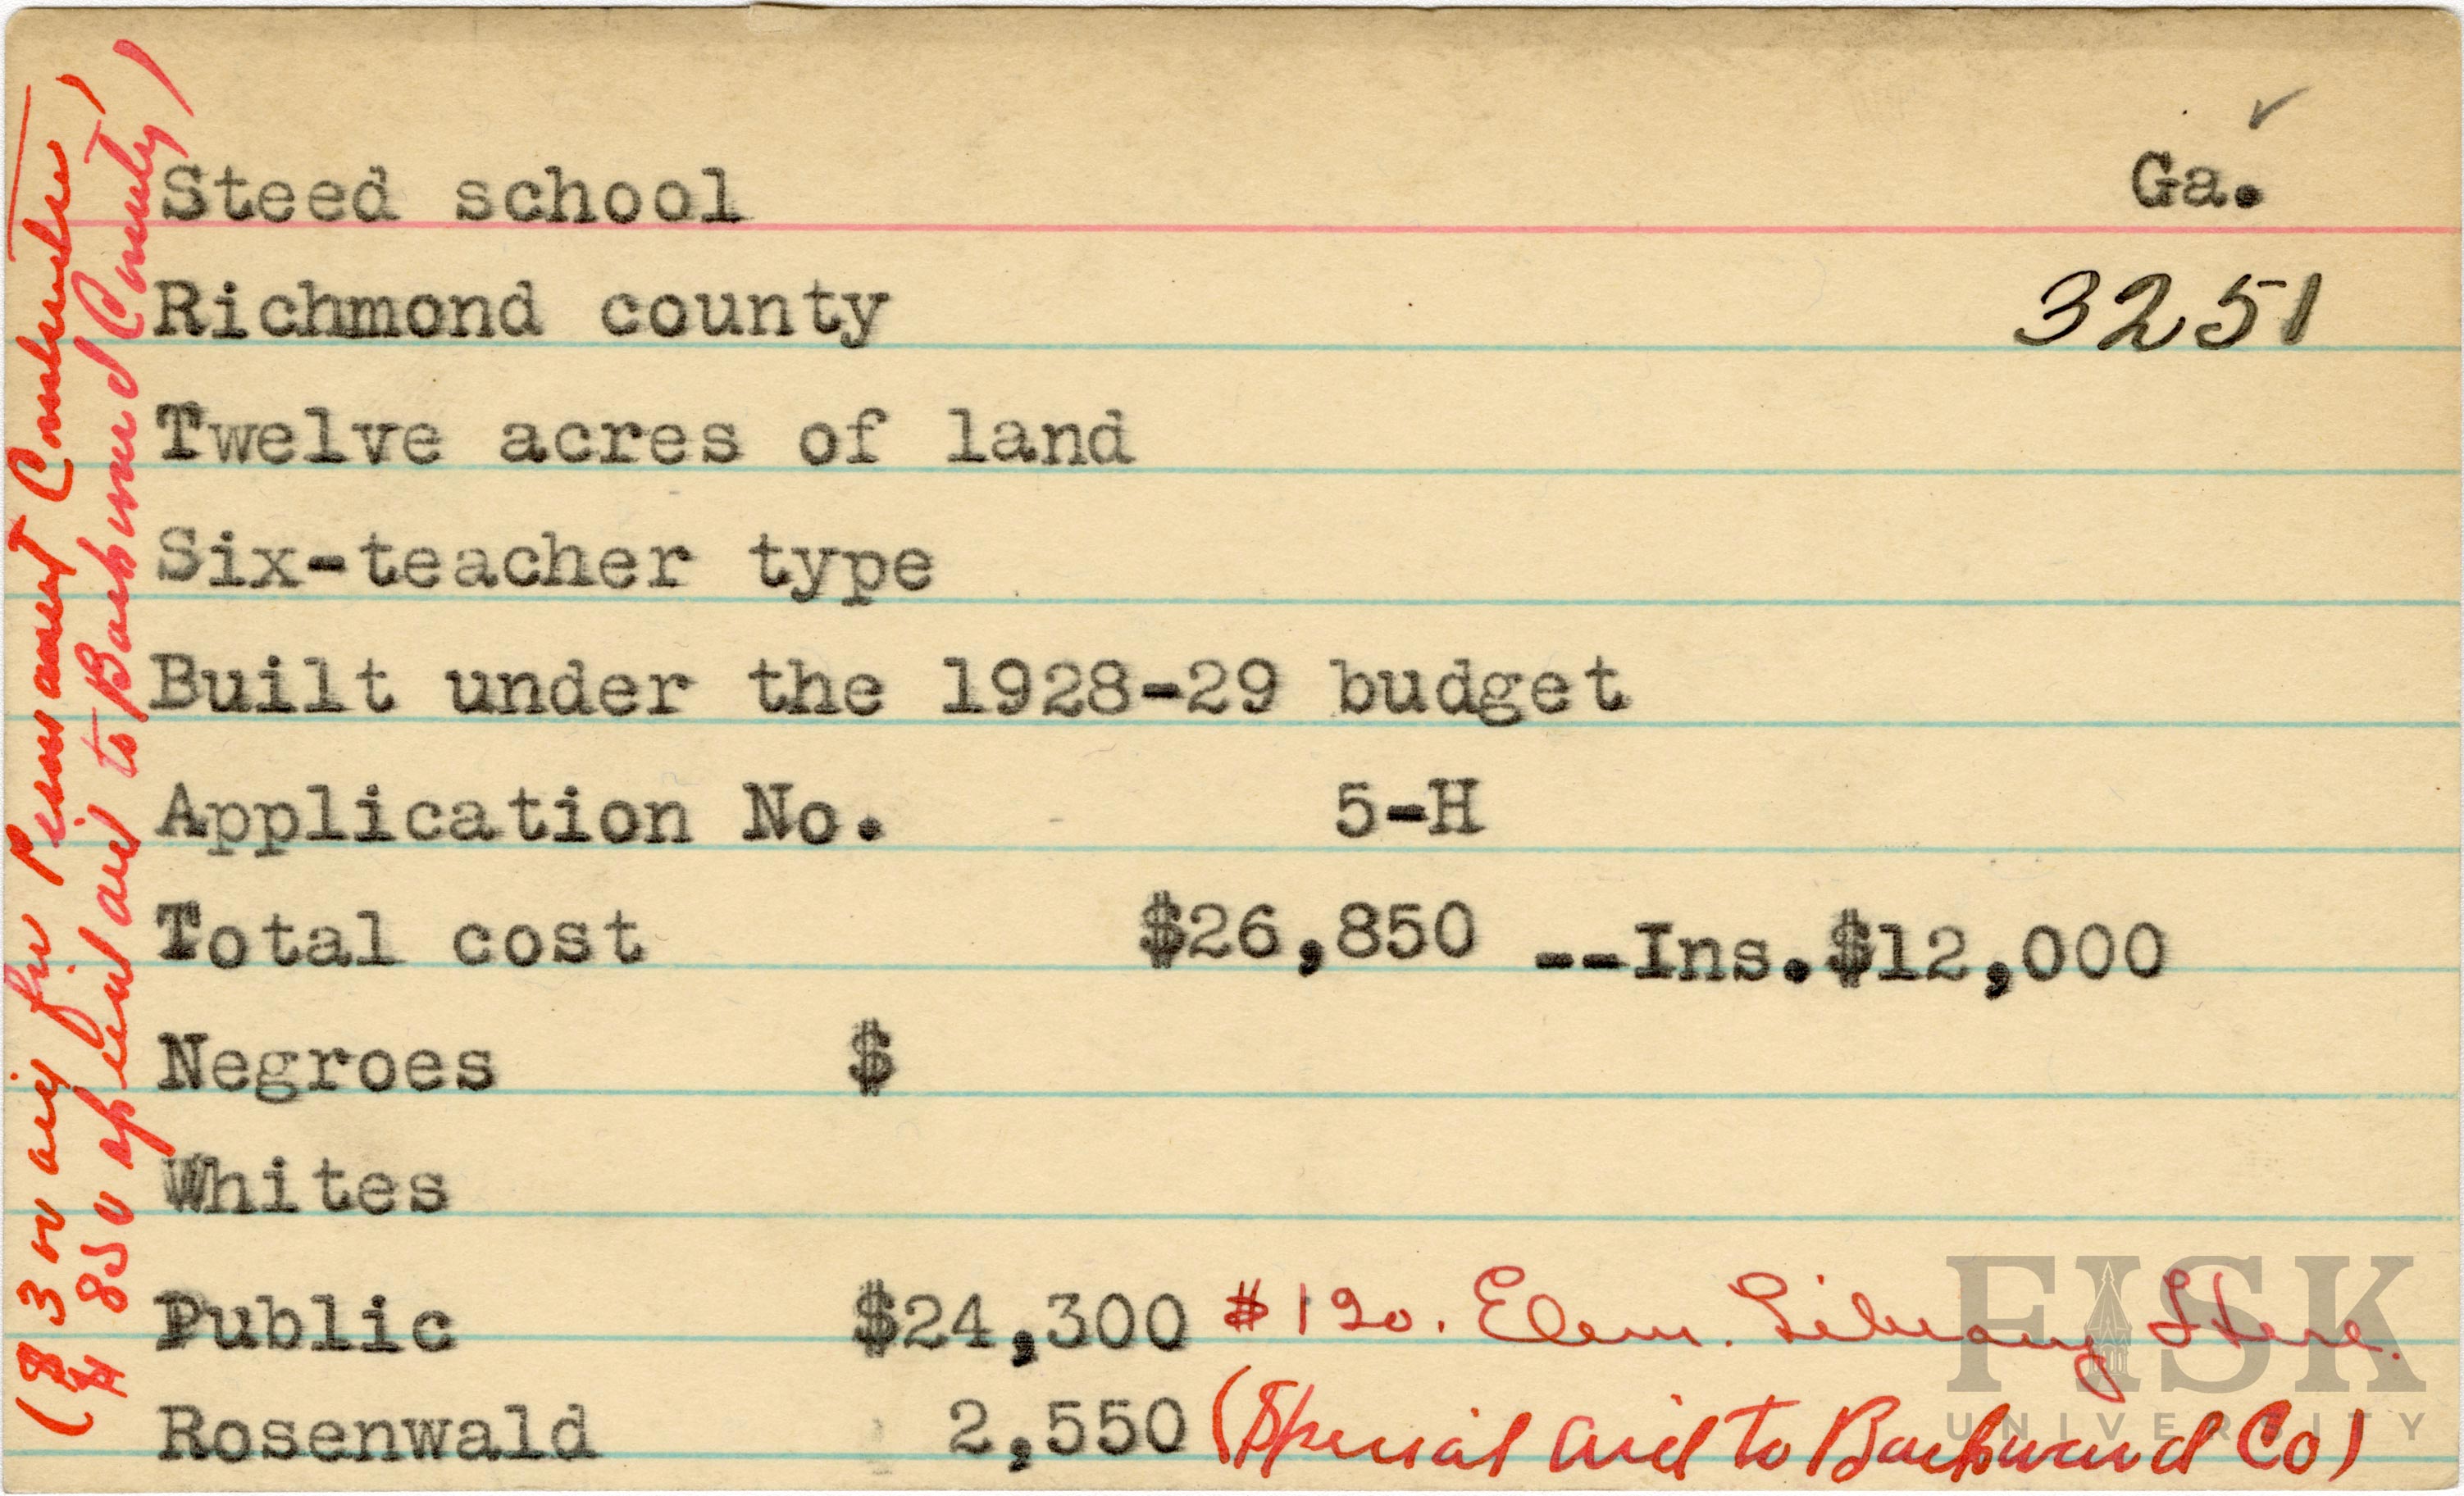 Steed school Ga.
Richmond county 3251
Twelve acres of land
Six-teacher type
Built under the 1928-29 budget
Application No. 5-H
Total cost $26,850 --Ins.$12,000
Negroes $
Whites
Public $24,300 $120. Elem. Library Here.
Rosenwald 2,550 (Special aid to Backward Co)
($300 aid for Permanent Construction)
$850 special aid to Backward County)
FISK
UNIVERSITY